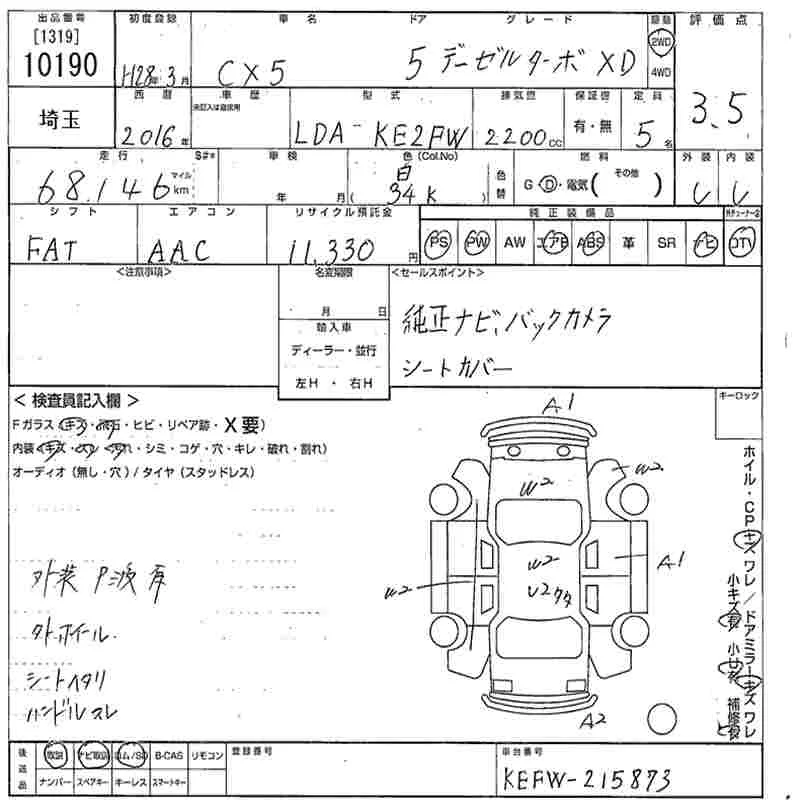 出品番号 初度登録 車名 ドア グレード 駆動 評価点
[1319]
10190 H28年3月 CX5 5 デーゼルターボ XD 2WD 4WD
埼玉 西暦 車歴 型式 排気量 保証書 定員 3.5
未記入は自家用
2016年 LDA- KE2FW 2200cc 有・無 5名
走行 S#* 車検 色(Col.No) 燃料 外装 内装
68,146 マイル km 年 月( 白 34K ) 色替 G・D・電気( その他 )
シフト エアコン リサイクル預託金 純正装備品
FAT AAC 11,330円 PS PW AW エアB ABS 革 SR ナビ
<注意事項> 名変期限 <セールスポイント>
月 日 純正ナビ、バックカメラ
輸入車
ディーラー・並行 シートカバー
左H ・ 右H
< 検査員記入欄 > キーロック
Fガラス(キズ・飛石・ヒビ・リペア跡・X要)
内装(キズ・スレ・汚れ・シミ・コゲ・穴・キレ・破れ・割れ)
オーディオ(無し・穴)/タイヤ(スタッドレス)
A1
W2 W2
W2 A1
W2 U2
A2
外装 P=波有
外ホイール.
シートヘタリ
ハンドルスレ
ホイル・CPキズワレ/ドアミラーキズワレ
小キズ有 小凹有 補修
後送品 取説 ナビ取説 B-CAS リモコン 登録番号 車台番号
ナンバー スペアキー キーレス スマートキー KEFW-215873